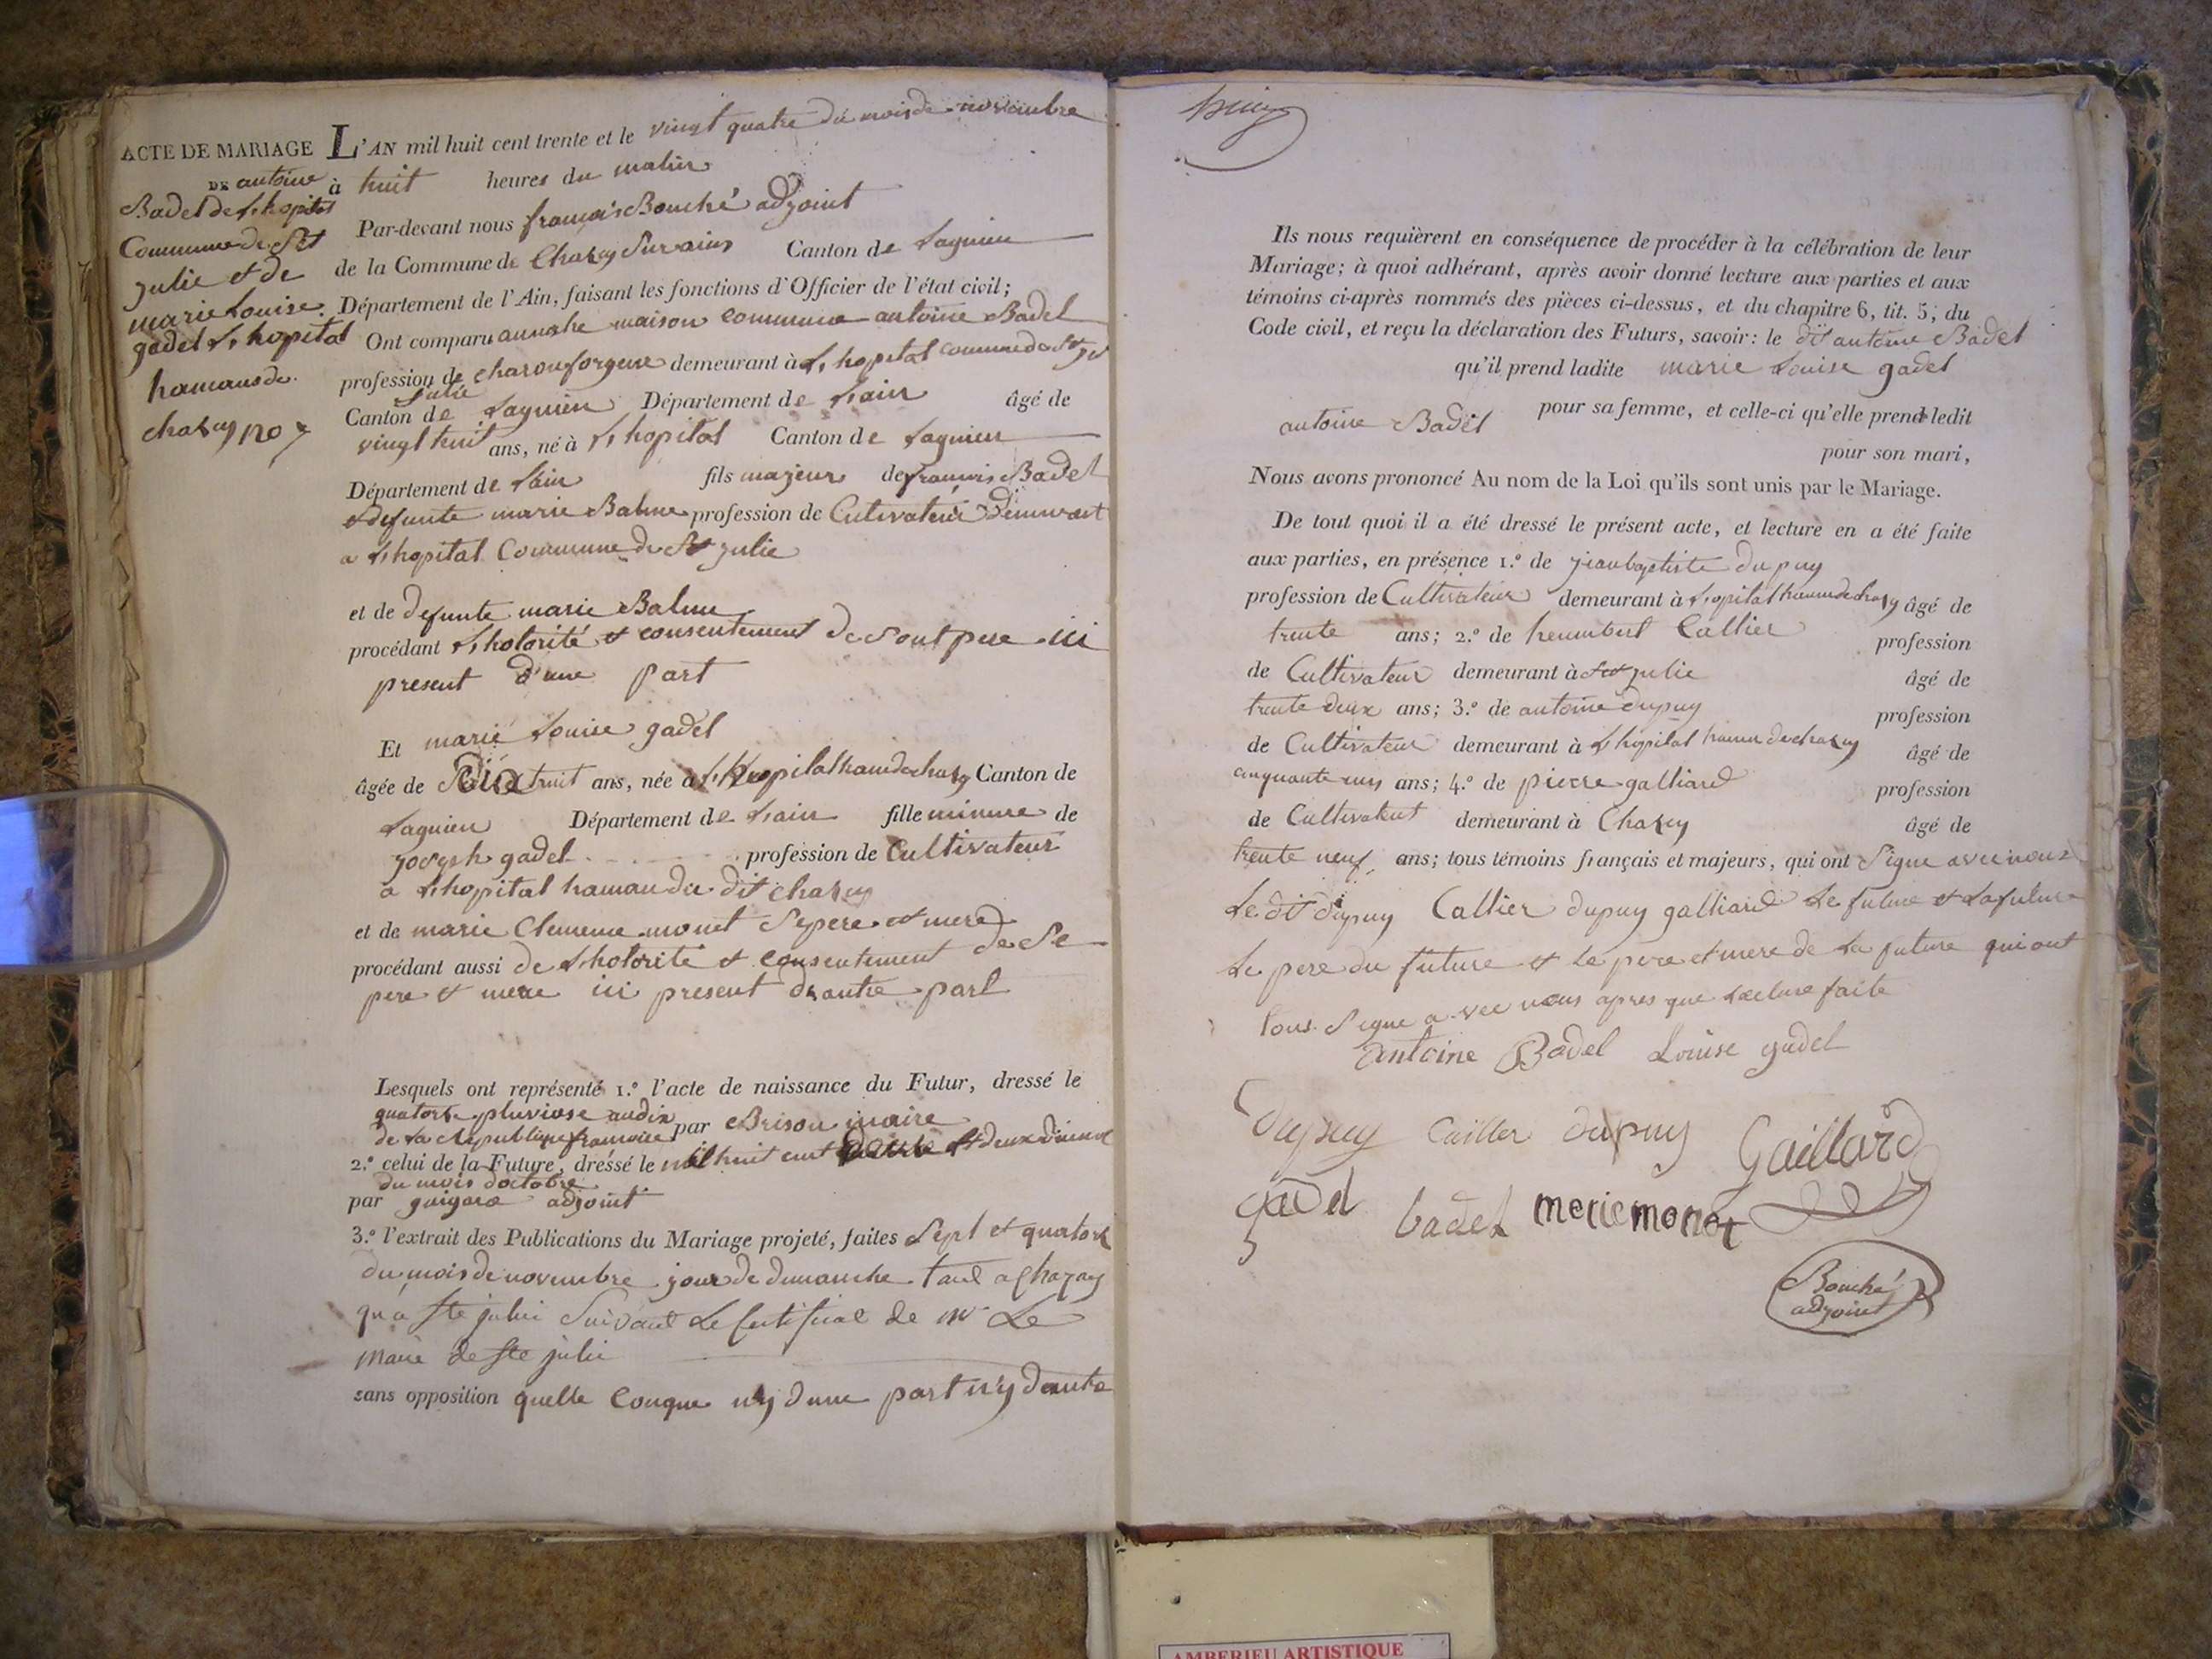 ACTE DE MARIAGE
DE antoine
Badel de Lhopital
Commune de St
julie et de
marie Louise
gadel Lhopital
hamaus de
chazey no 7
L'AN mil huit cent trente et le vingt quatre du mois de novembre
à huit heures du matin
Par-devant nous françois Bouché adjoint
de la Commune de Chazey Sur ains Canton de Lagnieu
Département de l'Ain, faisant les fonctions d'Officier de l'état civil;
Ont comparu maison commune antoine Badel
profession de charon forgeur demeurant à Lhopital commune de St
julie
Canton de Lagnieu Département de Lain âgé de
vingt huit ans, né à Lhopital Canton de Lagnieu
Département de Lain fils majeur de francois Badel
et defunte marie Balme profession de Cutivateur Demurant
a Lhopital Commune de St julie
et de defunte marie Balme
procédant Lhotorité et consentement de sont pere ici
present d'une part
Et marie Louise gadel
âgée de Dix huit ans, née à Lhopital ham de chazey Canton de
Lagnieu Département de Lain fille mineure de
josegh gadel profession de Cultivateur
a Lhopital hamau du dit chazey
et de marie Clemence monet Se pere et mere
procédant aussi de Lhotorité et consentement de Se
pere et mere ici present dautre part
Lesquels ont représenté 1.° l'acte de naissance du Futur, dressé le
quatorze pluviose an dix par Brison maire
de La Republique francoise
2.° celui de la Future, dressé le mil huit cent et deux
du mois doctobre
par guigard adjoint
3.° l'extrait des Publications du Mariage projeté, faites Sept et quatorze
du mois de novembre jour de dimanche tant a Chazey
qu'a Ste julie Suivant Le Certificat de Mr Le
Maire de Ste julie
sans opposition quelle conque n'y dune part n'y dautre
Ils nous requièrent en conséquence de procéder à la célébration de leur
Mariage; à quoi adhérant, après avoir donné lecture aux parties et aux
témoins ci-après nommés des pièces ci-dessus, et du chapitre 6, tit. 5, du
Code civil, et reçu la déclaration des Futurs, savoir: le dit antoine Badel
qu'il prend ladite marie Louise gadel
pour sa femme, et celle-ci qu'elle prend ledit
antoine Badel
pour son mari,
Nous avons prononcé Au nom de la Loi qu'ils sont unis par le Mariage.
De tout quoi il a été dressé le présent acte, et lecture en a été faite
aux parties, en présence 1.° de jean baptiste dupuy
profession de Cultivateur demeurant à Lopital ham de chazey âgé de
trente ans; 2.° de humbert Callier profession
de Cultivateur demeurant à Ste julie âgé de
trente deux ans; 3.° de antoine dupuy profession
de Cultivateur demeurant à Lhopital hamau de chazey âgé de
cinquante ans; 4.° de pierre galliard profession
de Cultivateur demeurant à Chazey âgé de
trente neuf ans; tous témoins français et majeurs, qui ont Signe avec nous
Le dit dupuy Callier dupuy galliard Le future et La future
Le pere du future et Le pere et mere de La future qui ont
tous Signe avec nous apres que Lecture faite
antoine Badel Louise gadel
dupuy Cailler dupuy Gaillard
gadel badel merie monet
Bouché
adjoint
AMBERIEU ARTISTIQUE